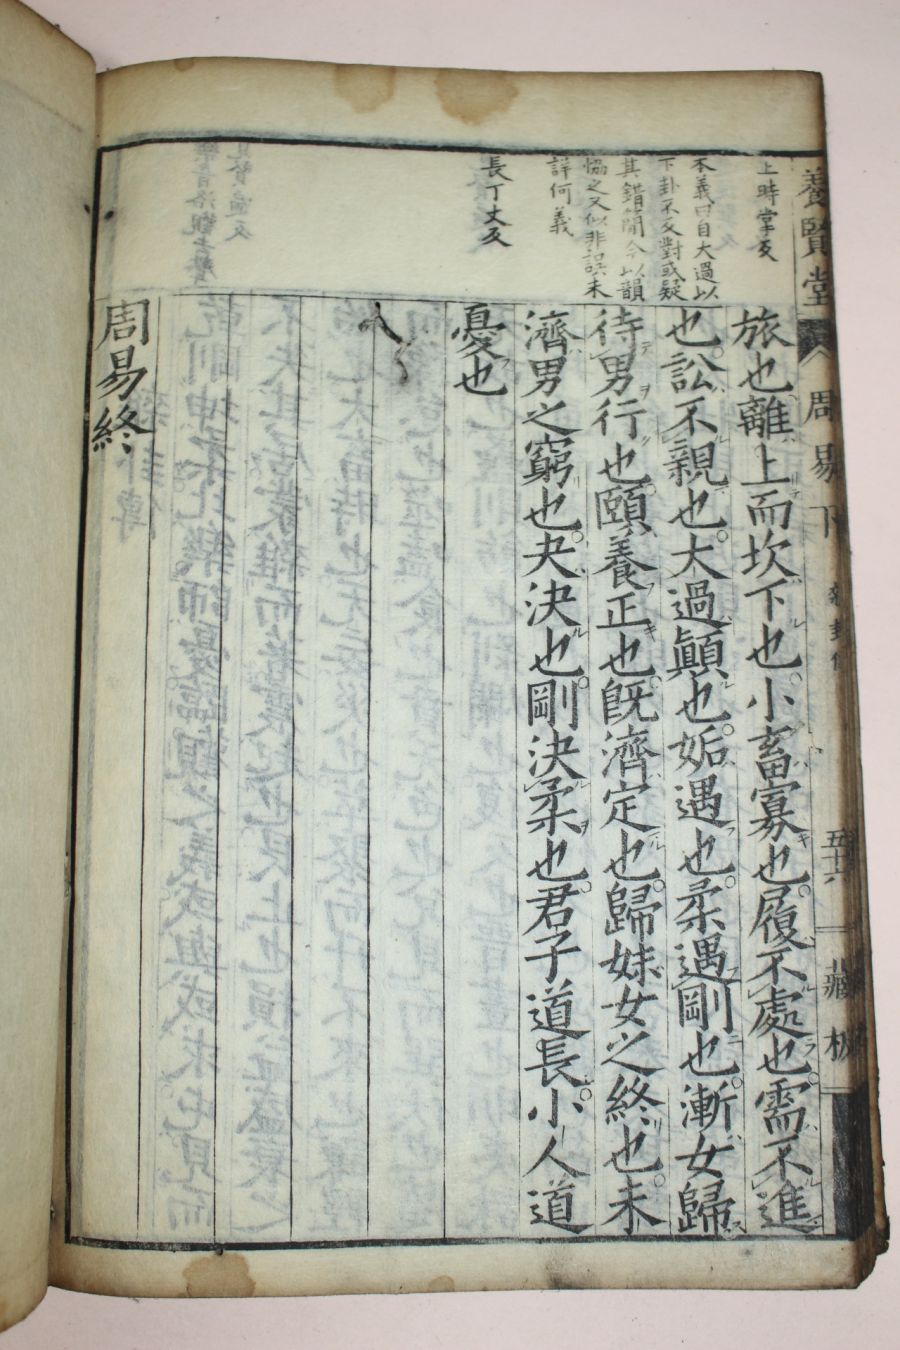 養賢堂
周易下
五十六
藏板
上時掌反
本義曰自大過以
下卦不反對或疑
其錯簡今以韻
恊之又似非誤未
詳何義
長丁丈反
旅也離上而坎下也小畜寡也履不處也需不進
也訟不親也大過顚也姤遇也柔遇剛也漸女歸
待男行也頤養正也旣濟定也歸妹女之終也未
濟男之窮也夬決也剛決柔也君子道長小人道
憂也
周易終